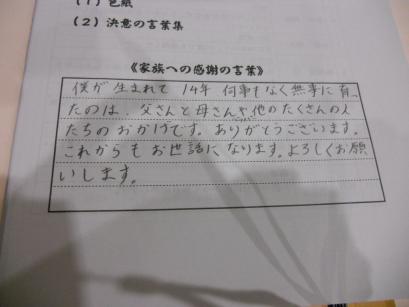 (1) 色紙
(2) 決意の言葉集
《家族への感謝の言葉》
僕が生まれて 14年 何事もなく無事に育っ
たのは、父さんと母さんや他のたくさんの人
たちのおかげです。ありがとうございます。
これからもお世話になります。よろしくお願
いします。